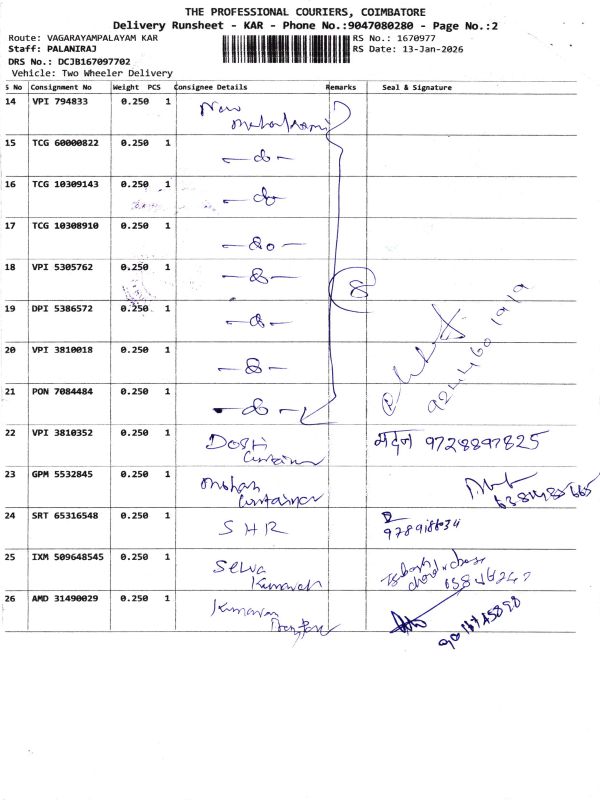 THE PROFESSIONAL COURIERS, COIMBATORE
Delivery Runsheet - KAR - Phone No.:9047080280 - Page No.:2
Route: VAGARAYAMPALAYAM KAR RS No.: 1670977
Staff: PALANIRAJ RS Date: 13-Jan-2026
DRS No.: DCJB167097702
Vehicle: Two Wheeler Delivery
S No Consignment No Weight PCS Consignee Details Remarks Seal & Signature
14 VPI 794833 0.250 1 New
15 TCG 60000822 0.250 1 -do-
16 TCG 10309143 0.250 1 -do-
17 TCG 10308910 0.250 1 -do-
18 VPI 5305762 0.250 1 -do- 8
19 DPI 5386572 0.250 1 -do-
20 VPI 3810018 0.250 1 -do-
21 PON 7084484 0.250 1 -do-
22 VPI 3810352 0.250 1 Doshi 9728897825
23 GPM 5532845 0.250 1 Mohan
Container
24 SRT 65316548 0.250 1 SHR
25 IXM 509648545 0.250 1 Selva
Kumaran
26 AMD 31490029 0.250 1 Kumaran